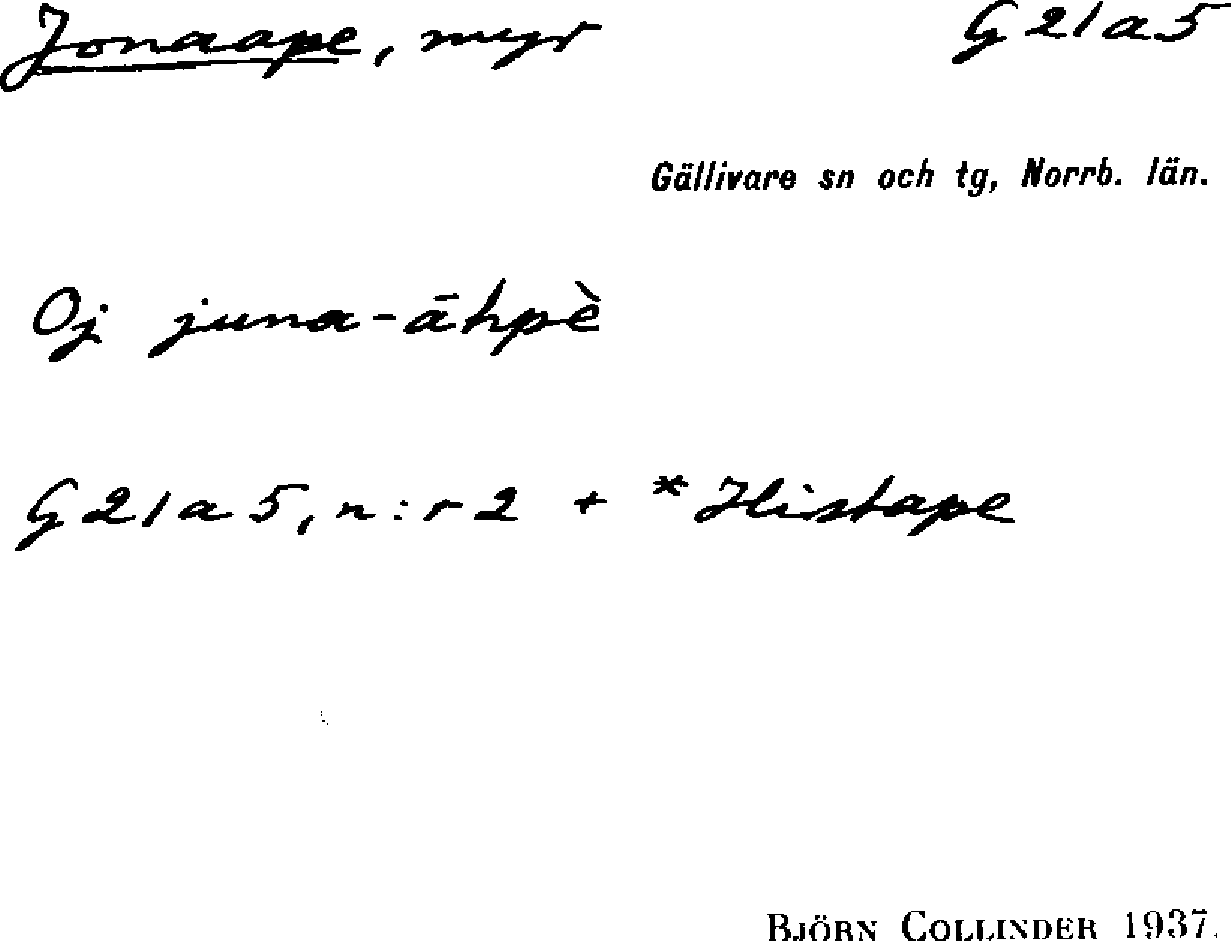 Jonaape, myr G21a5
Gällivare sn och tg, Norrb. län.
Oj juna-āhpè
G21a5, n:r 2 + *Histape
BJÖRN COLLINDER 1937.